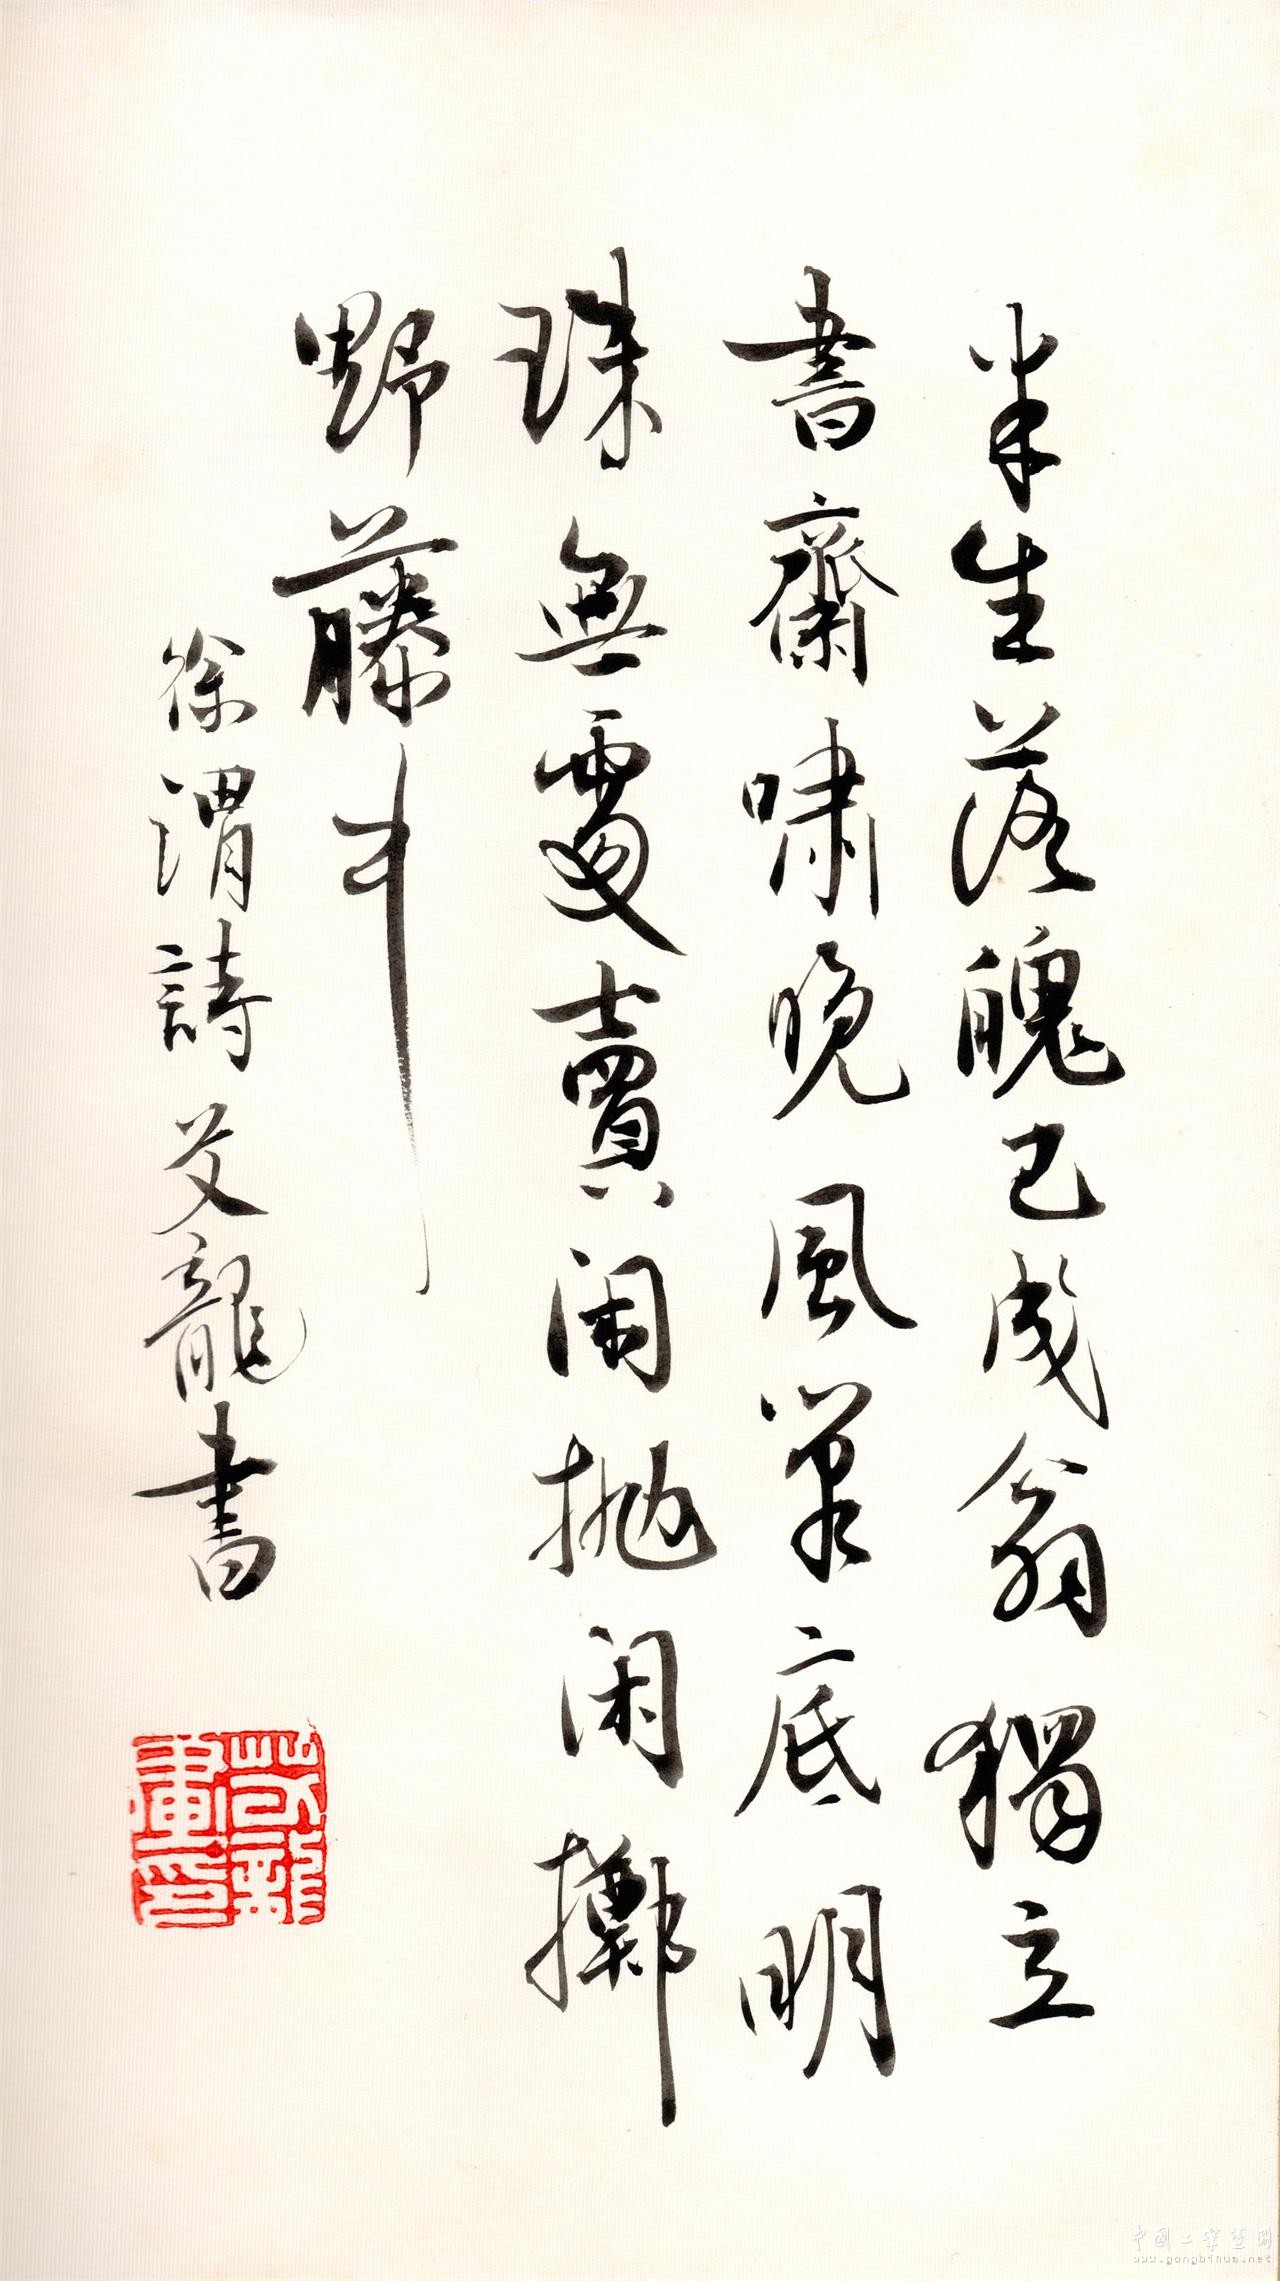 半生落魄已成翁獨立
書齋嘯晚風筆底明
珠無處賣閑抛閑擲
野藤中
徐渭詩艾龍書
中國工筆畫網
www.gongbihua.net